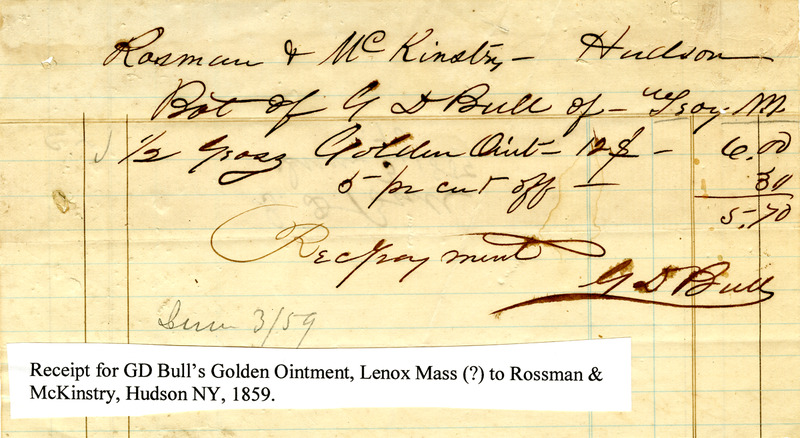 Rosman & McKinstry – Hudson
Bot of G D Bull of – Troy
1/2 Gross Golden Oint – 12$ – 6.00
5 pr cut off — 30
5.70
Rec payment
G D Bull
3/59
Receipt for GD Bull's Golden Ointment, Lenox Mass (?) to Rossman &
McKinstry, Hudson NY, 1859.